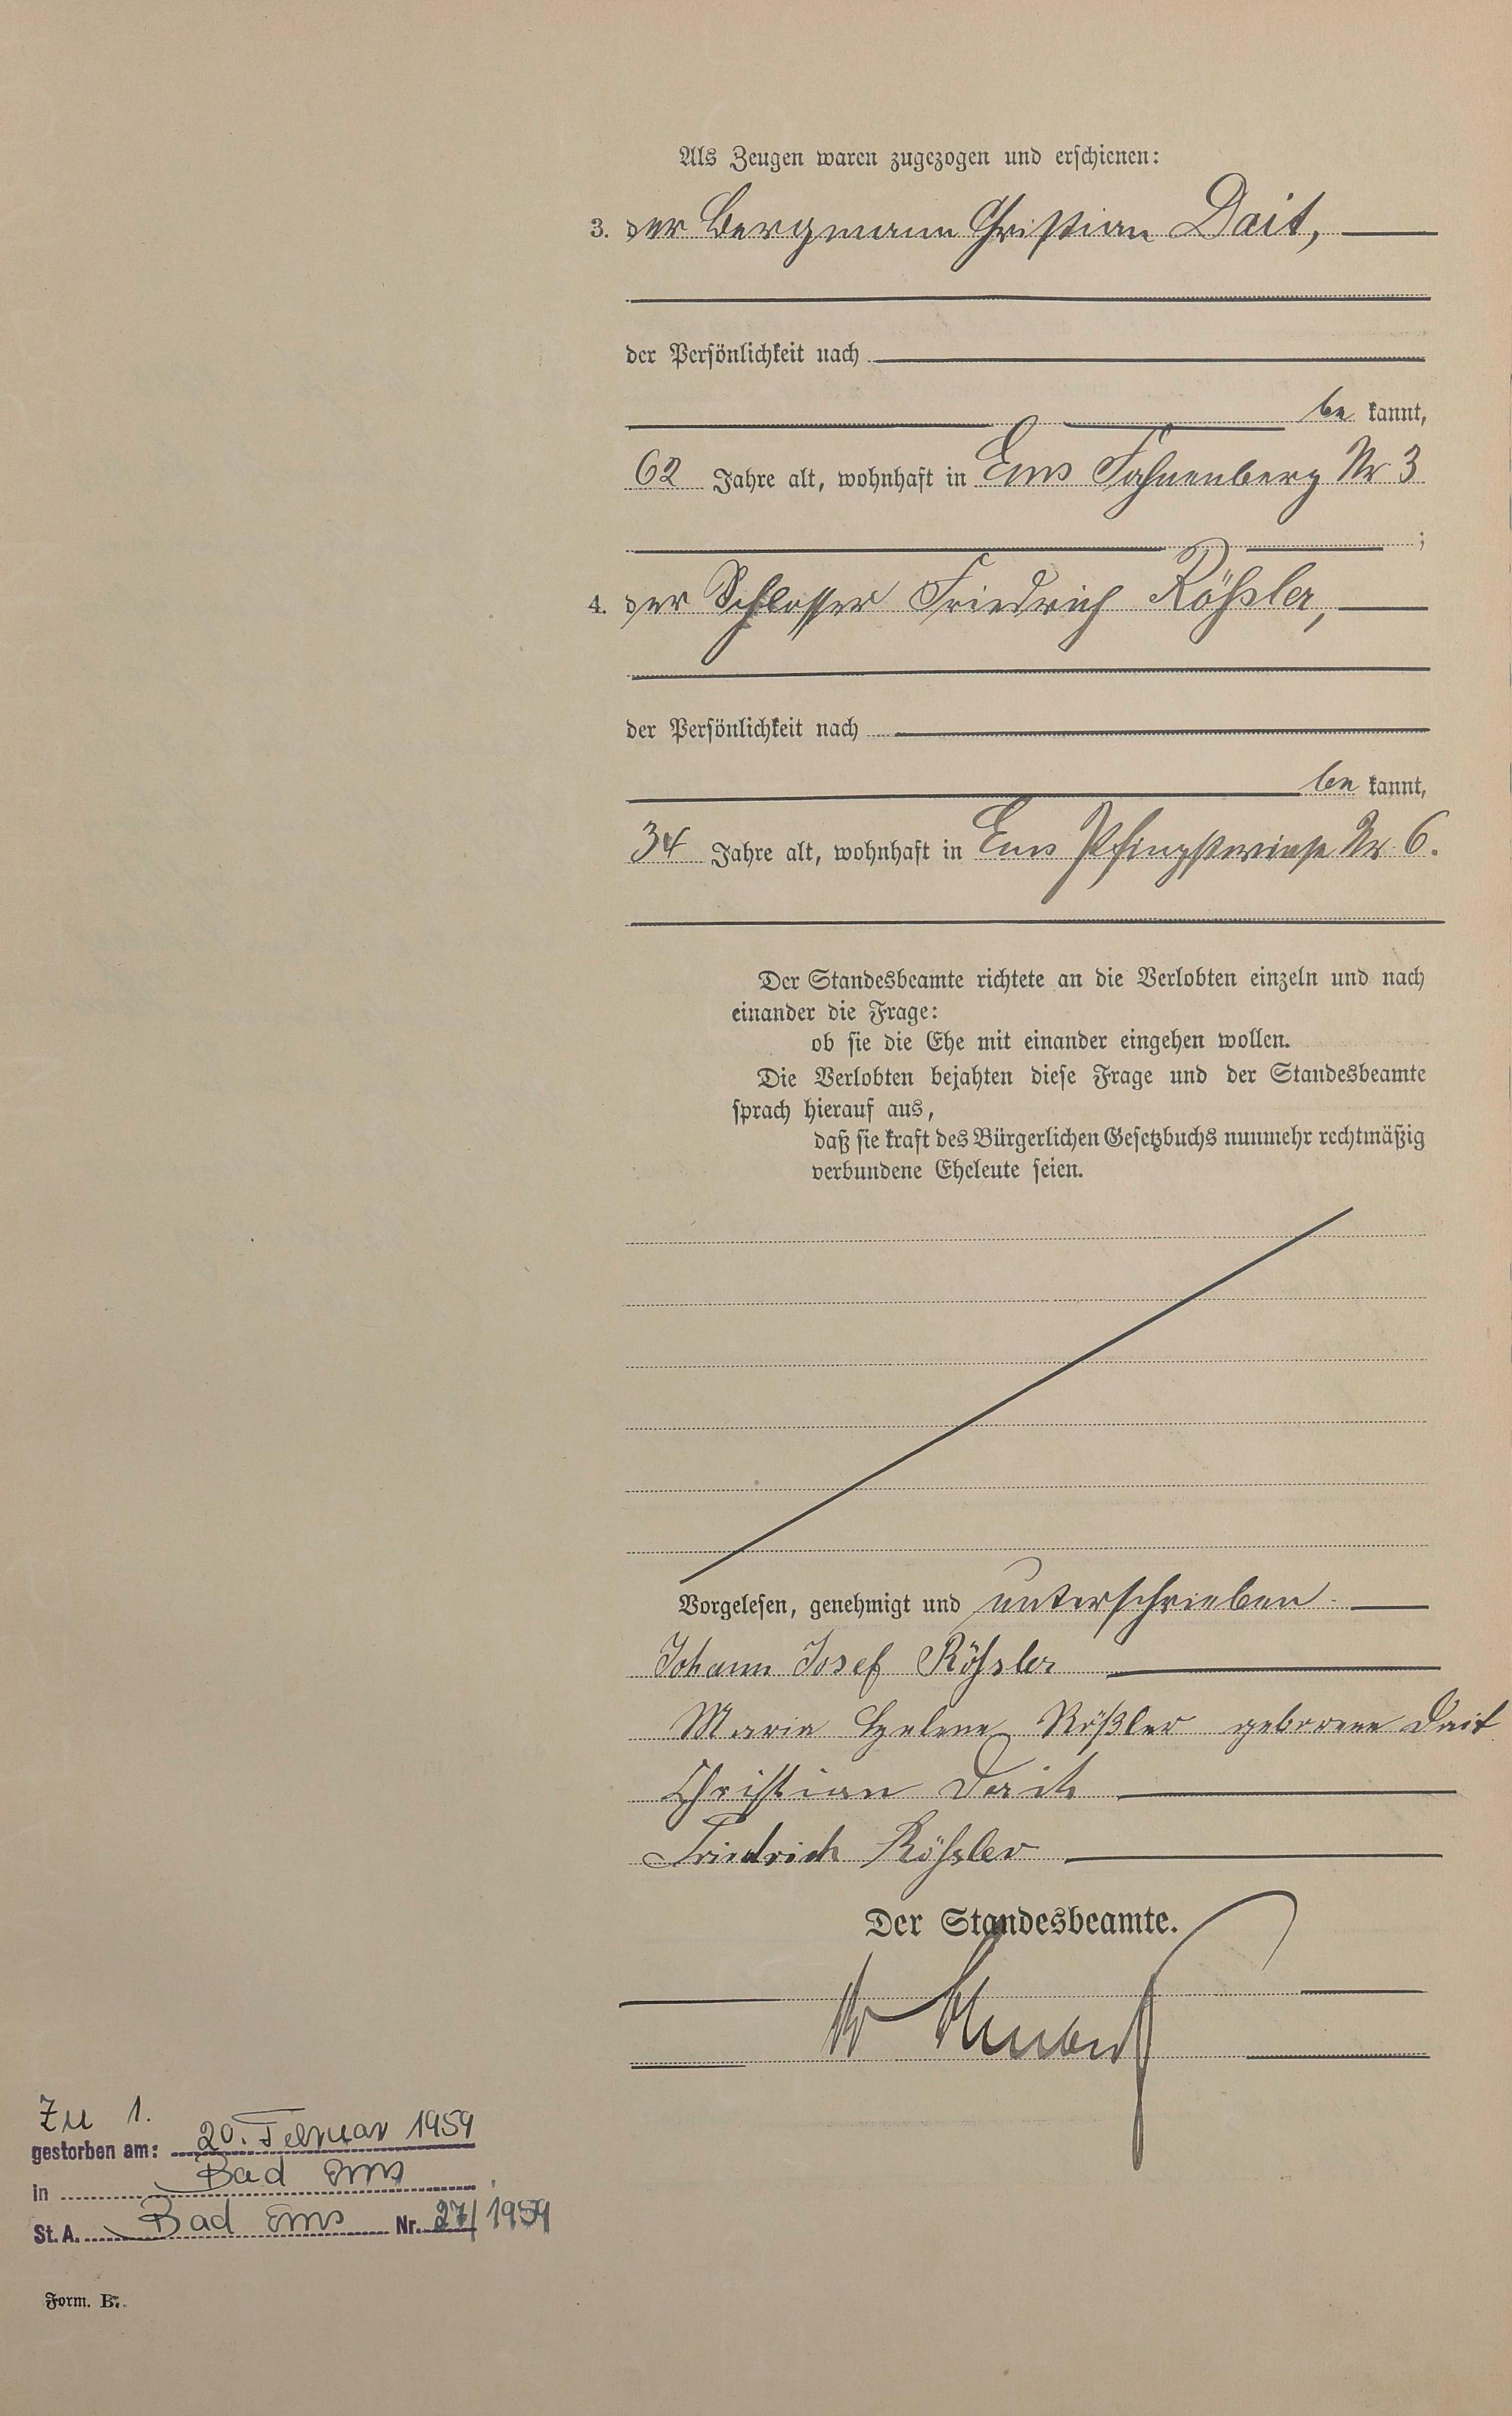 Als Zeugen waren zugezogen und erschienen:
3. der Bergmann Christian Dait,
der Persönlichkeit nach
be kannt,
62 Jahre alt, wohnhaft in Ems Fahnenberg Nr 3
;
4. der Schlosser Friedrich Rößler,
der Persönlichkeit nach
be kannt,
34 Jahre alt, wohnhaft in Ems Pfingstwiese Nr. 6.
Der Standesbeamte richtete an die Verlobten einzeln und nach
einander die Frage:
ob sie die Ehe mit einander eingehen wollen.
Die Verlobten bejahten diese Frage und der Standesbeamte
sprach hierauf aus,
daß sie kraft des Bürgerlichen Gesetzbuchs nunmehr rechtmäßig
verbundene Eheleute seien.
Vorgelesen, genehmigt und unterschrieben
Johann Josef Rößler
Maria Helene Rößler geborene Dait
Christian Dait
Friedrich Rößler
Der Standesbeamte.
Zu 1.
gestorben am: 20. Februar 1959
in Bad Ems
St. A. Bad Ems Nr. 27/1959
Form. B.